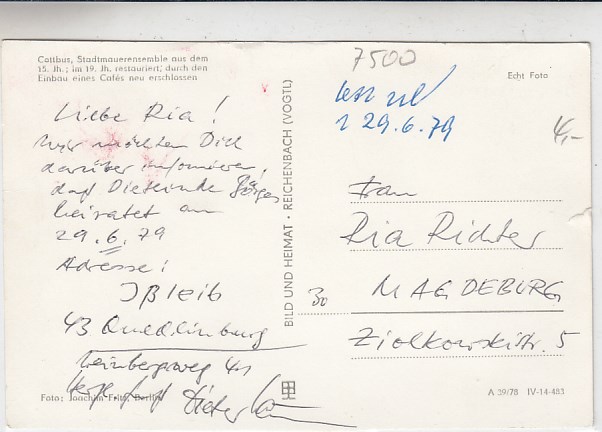 Cottbus, Stadtmauerensemble aus dem
15. Jh.; im 19. Jh. restauriert; durch den
Einbau eines Cafés neu erschlossen
7500
Echt Foto
29.6.79
4,-
Liebe Ria!
Wir möchten Dich
darüber informieren,
daß Dieter
heiratet am
29.6.79
Adresse:
43 Quedlinburg
Weinbergweg
Dieter
BILD UND HEIMAT · REICHENBACH (VOGTL)
Frau
Ria Richter
30 MAGDEBURG
Ziolkowskistr. 5
Foto: Joachim Fritz, Berlin
A 39/78 IV-14-483